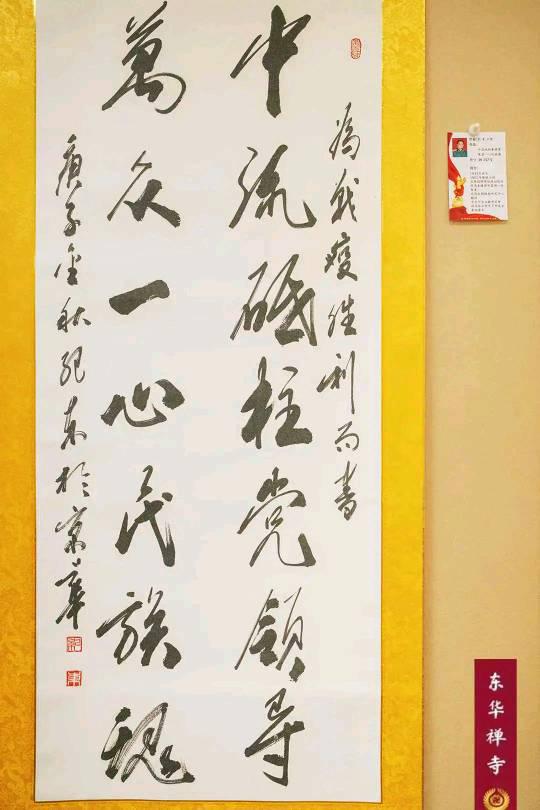 為战疫胜利而書
中流砥柱党领导
萬众一心民族魂
庚子金秋纪东於京華
东华禅寺